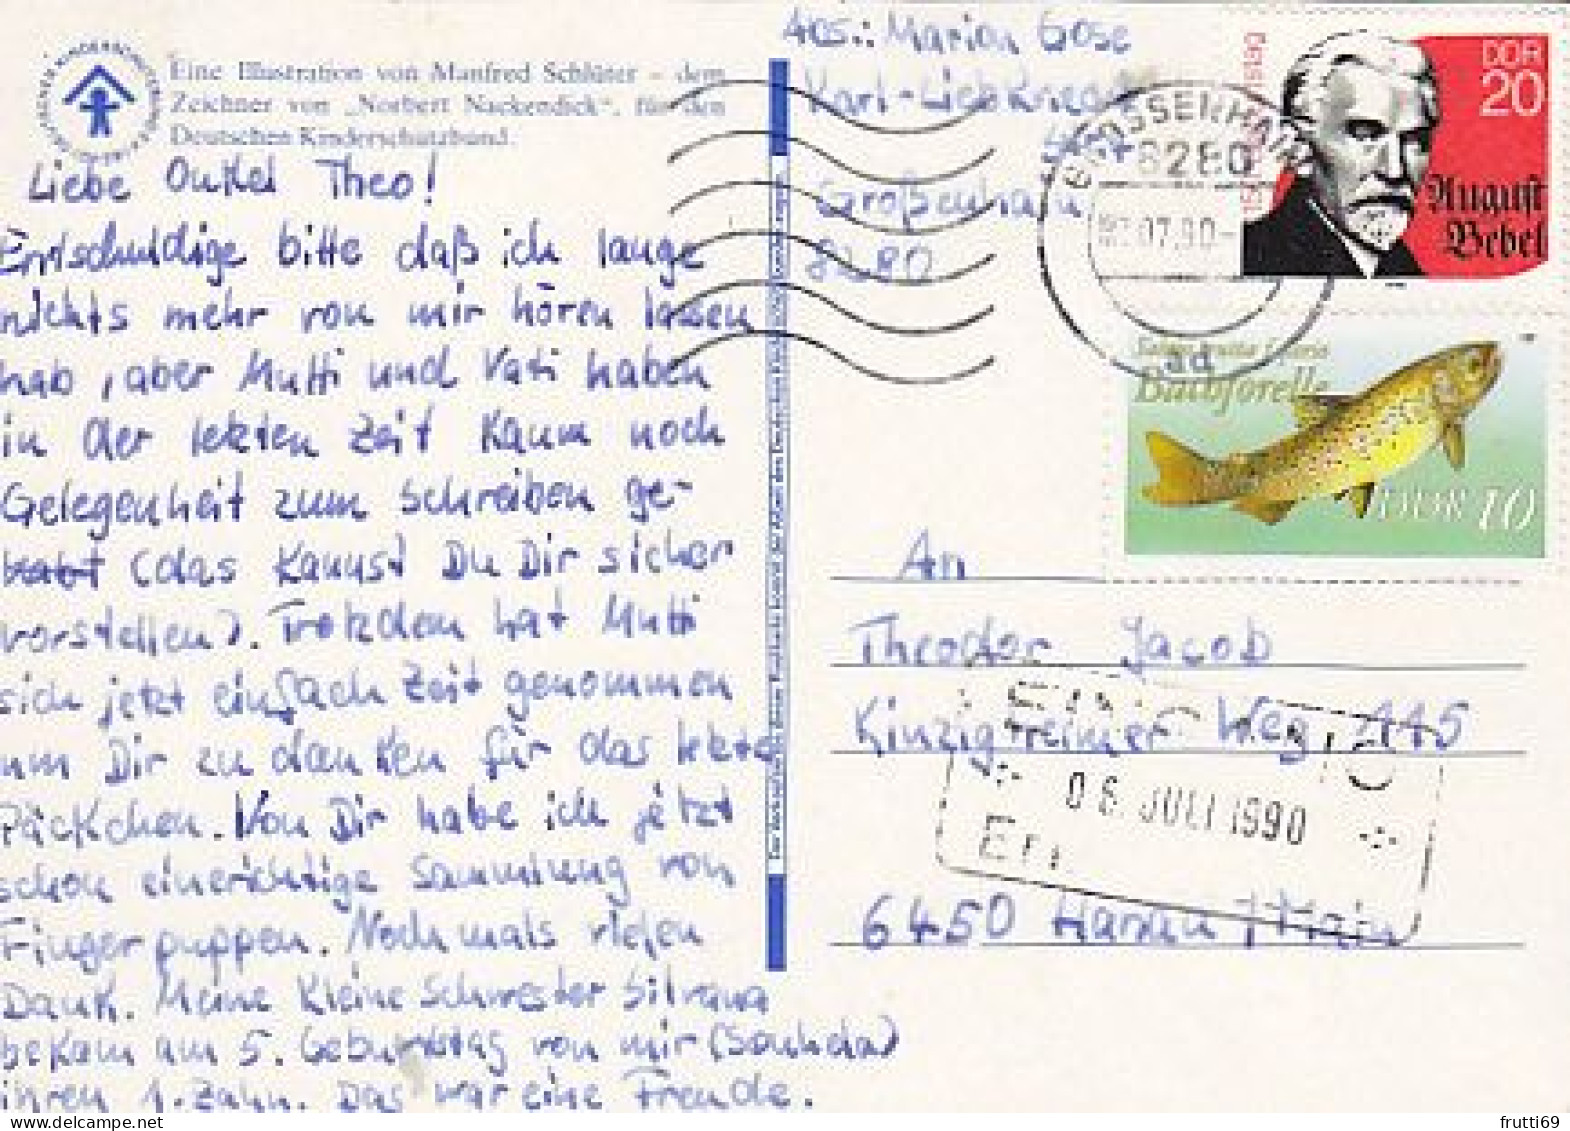 Eine Illustration von Manfred Schlüter – dem
Zeichner von „Norbert Nackendick“, für den
Deutschen Kinderschutzbund.
Liebe Onkel Theo!
Entschuldige bitte daß ich lange
nichts mehr von mir hören lassen
hab, aber Mutti und Vati haben
in der letzten Zeit kaum noch
Gelegenheit zum schreiben ge-
habt (das kannst Du Dir sicher
vorstellen). Trotzdem hat Mutti
sich jetzt einfach Zeit genommen
um Dir zu danken für das letzte
Päckchen. Von Dir habe ich jetzt
schon eine richtige Sammlung von
Fingerpuppen. Nochmals vielen
Dank. Meine kleine Schwester Silvana
bekam am 5. Geburtstag von mir
ihren 1. Zahn. Das war eine Freude.
Abs.: Marion Gose
Karl-Liebknecht
Großenhain
8280
GROSSENHAIN
8280
.07.90
ad
DDR
20
August
Bebel
Bachforelle
DDR 10
An
Theodor Jacob
Kinzigheimer Weg 115
06. JULI 1990
6450 Hanau / Main
frutti69